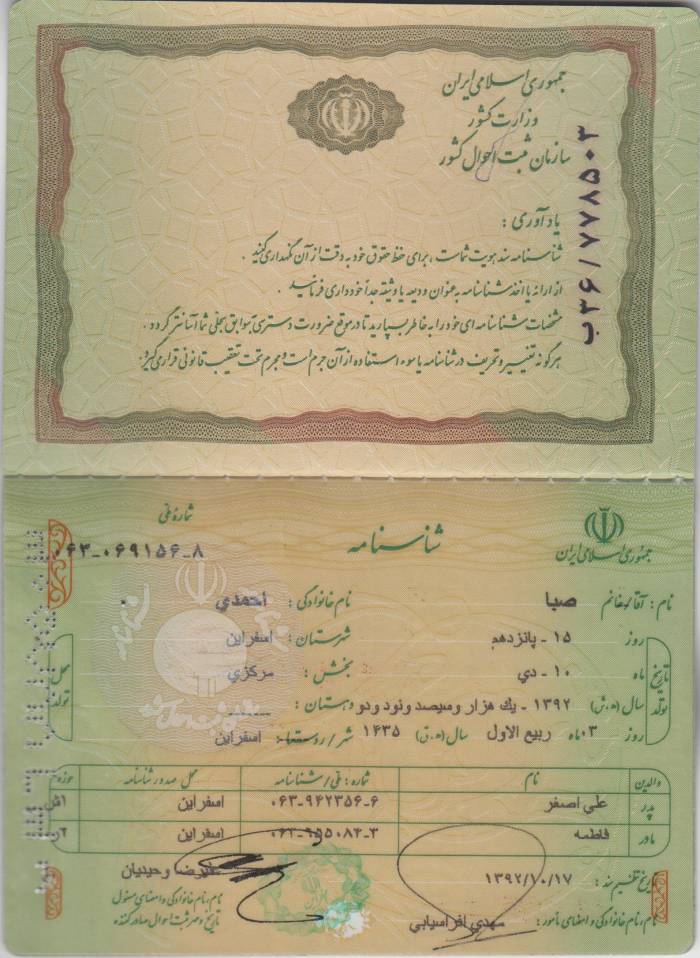 جمهوری اسلامی ایران
وزارت کشور
سازمان ثبت احوال کشور
ب۳۶/۷۷۸۵۰۳
یادآوری :
شناسنامه سند هویت شماست ، برای حفظ حقوق خود به دقت از آن نگهداری کنید .
از ارائه یا اخذ شناسنامه به عنوان ودیعه یا وثیقه جداً خودداری فرمائید .
مشخصات شناسنامه ای خود را به خاطر بسپارید تا در موقع ضرورت دسترسی به سوابق سجلی شما آسانتر گردد .
هرگونه تغییر و تحریف در شناسنامه یا سوء استفاده از آن جرم است و مجرم تحت تعقیب قانونی قرار می گیرد .
جمهوری اسلامی ایران
شناسنامه
شماره ملی
۰۶۳-۰۶۹۱۵۶-۸
نام : آقا/خانم صبا نام خانوادگی : احمدي
تاریخ تولد
محل تولد
روز ۱۵ - پانزدهم شهرستان : اسفراین
ماه ۱۰ - دي بخش : مرکزي
سال (ه.ش) ۱۳۹۲ - یك هزار و سیصد و نود و دو دهستان :
روز ۰۳ ماه ربیع الاول سال (ه.ق) ۱۴۳۵ شهر/روستا : اسفراین
والدین نام شماره : ملی/شناسنامه محل صدور شناسنامه حوزه
پدر علي اصغر ۰۶۳-۹۴۲۳۵۶-۶ اسفراین ۱ش
مادر فاطمه ۰۶۳-۹۵۵۰۸۴-۳ اسفراین
تاریخ تنظیم سند : ۱۳۹۲/۱۰/۱۷ علیرضا وحیدیان
نام ، نام خانوادگی و امضای مأمور : مهدي افراسیابي
نام ، نام خانوادگی و امضای مسئول
تاریخ و مهر ثبت احوال صادرکننده